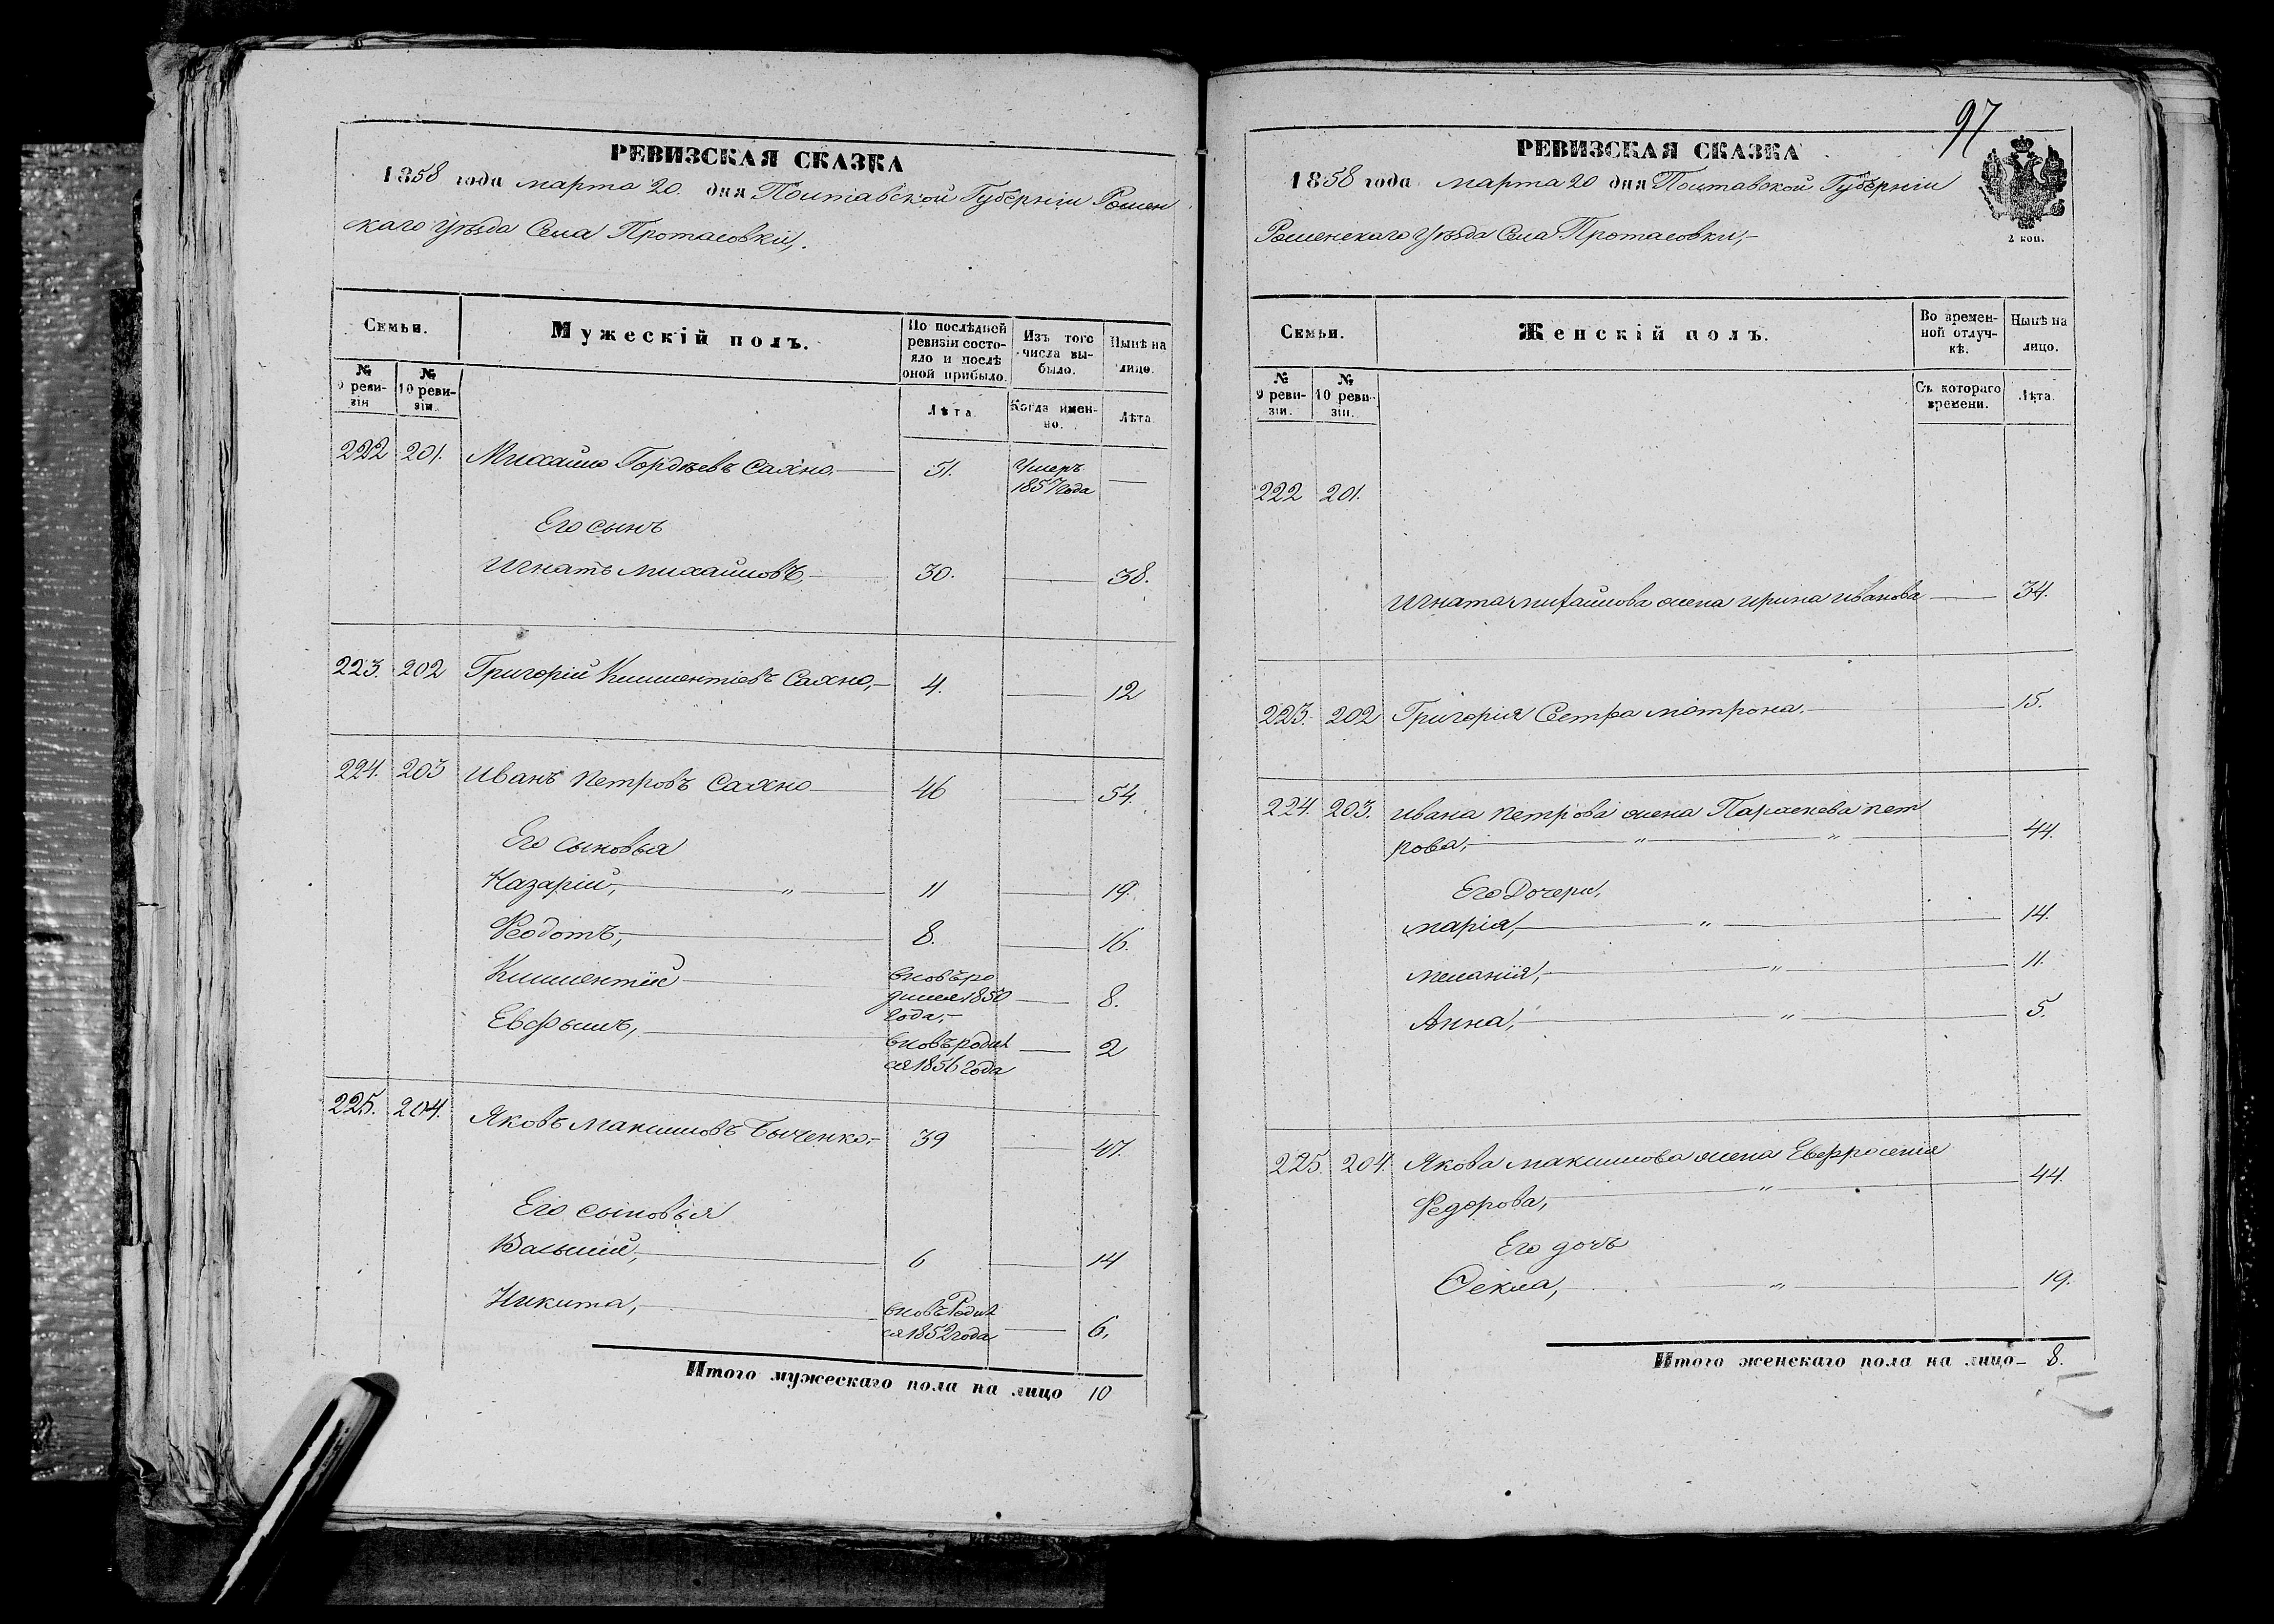 РЕВИЗСКАЯ СКАЗКА
1858 года марта 20. дня Полтавской Губерніи Ромен
скаго Уѣзда Села Протасовки,.
Семьи.
Мужескій полъ.
По послѣдней ревизіи состояло и послѣ оной прибыло.
Изъ того числа выбыло.
Нынѣ на лицо.
№ 9 ревизіи
№ 10 ревизіи.
Лѣта.
Когда именно.
Лѣта.
222 201. Михайло Гордѣевъ Сахно, 51. Умеръ 1857 года —
Его сынъ
Игнатъ Михайловъ, 30. — 38.
223. 202 Григорій Климентіевъ Сахно, 4. — 12
224. 203 Иванъ Петровъ Сахно 46 — 54.
Его сыновья
Назарій, „ 11 — 19.
Ѳеодотъ, 8. — 16.
Климентій вновь ро
дился 1850
года, — 8.
Евфимъ, вновь родил
ся 1856 года — 2
225. 204. Яковъ Максимовъ Быченко 39 — 47.
Его сыновья
Василій, 6 — 14
Никита, вновь Родил
ся 1852 года — 6.
Итого мужескаго пола на лицо 10
97
РЕВИЗСКАЯ СКАЗКА
1858 года марта 20 дня Полтавской Губерніи
Роменскаго Уѣзда Села Протасовки,
2 коп.
Семьи.
Женскій полъ.
Во временной отлучкѣ.
Нынѣ на лицо.
№ 9 ревизіи.
№ 10 ревизіи.
Съ котораго времени.
Лѣта.
222 201.
Игната Михайлова жена Ирина Иванова — 34.
223. 202 Григорія Сестра Матрона. 15.
224. 203. Ивана Петрова жена Параскева Пет
рова, „ „ 44.
Его Дочери,
Марія, „ 14.
Меланія, „ 11.
Анна, „ 5.
225. 204. Якова Максимова жена Евфросинія
Ѳедорова, „ 44.
Его дочь
Ѳекла, „ 19.
Итого женскаго пола на лицо 8.